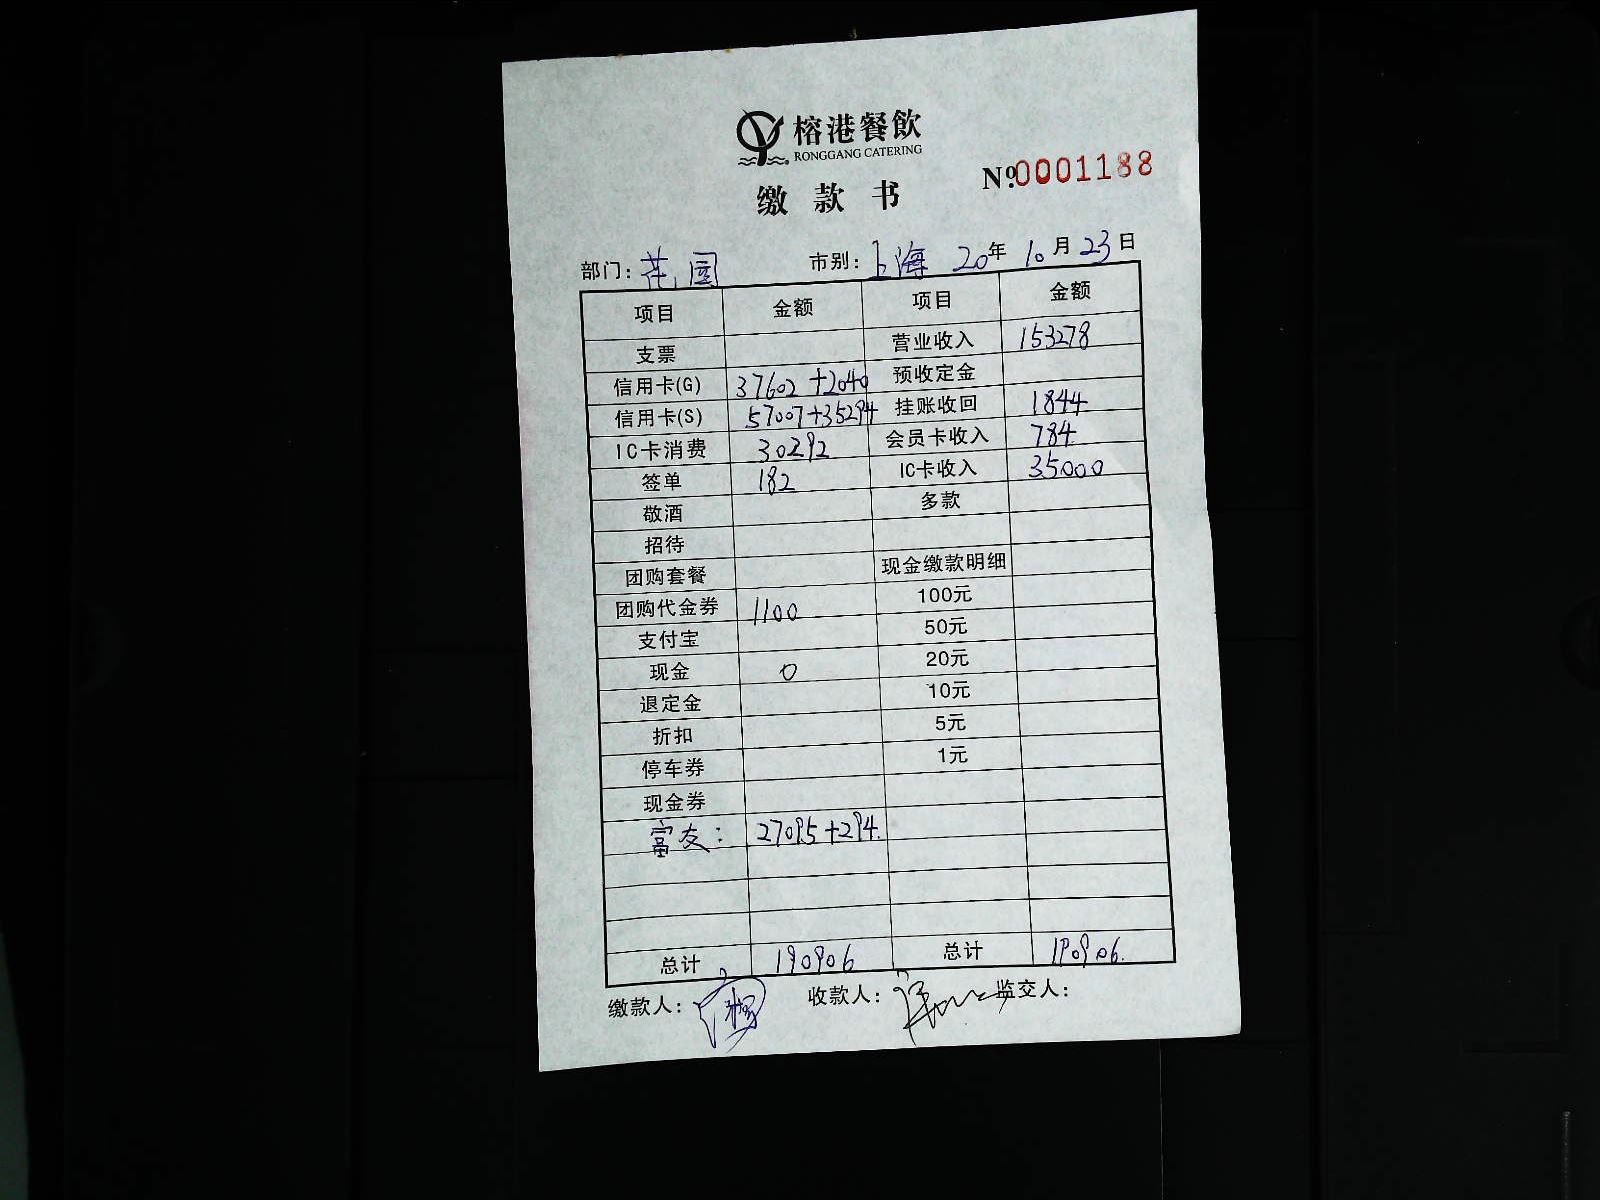 榕港餐飲
RONGGANG CATERING
缴款书
№0001188
部门: 花园 市别: 上海 20年 10月 23日
项目 金额 项目 金额
支票 营业收入 153278
信用卡(G) 37602+2040 预收定金
信用卡(S) 57007+35294 挂账收回 1844
IC卡消费 30292 会员卡收入 784
签单 182 IC卡收入 35000
敬酒 多款
招待
团购套餐 现金缴款明细
团购代金券 1100 100元
支付宝 50元
现金 0 20元
退定金 10元
折扣 5元
停车券 1元
现金券
富友: 27095+294.
总计 190906 总计 190906.
缴款人: 收款人: 监交人: